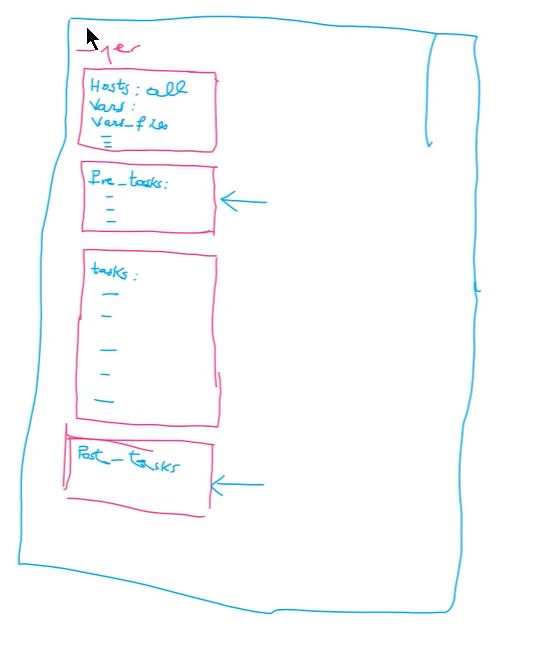 Hosts: all
Vars:
Vars_files
Pre_tasks:
tasks:
Post_tasks